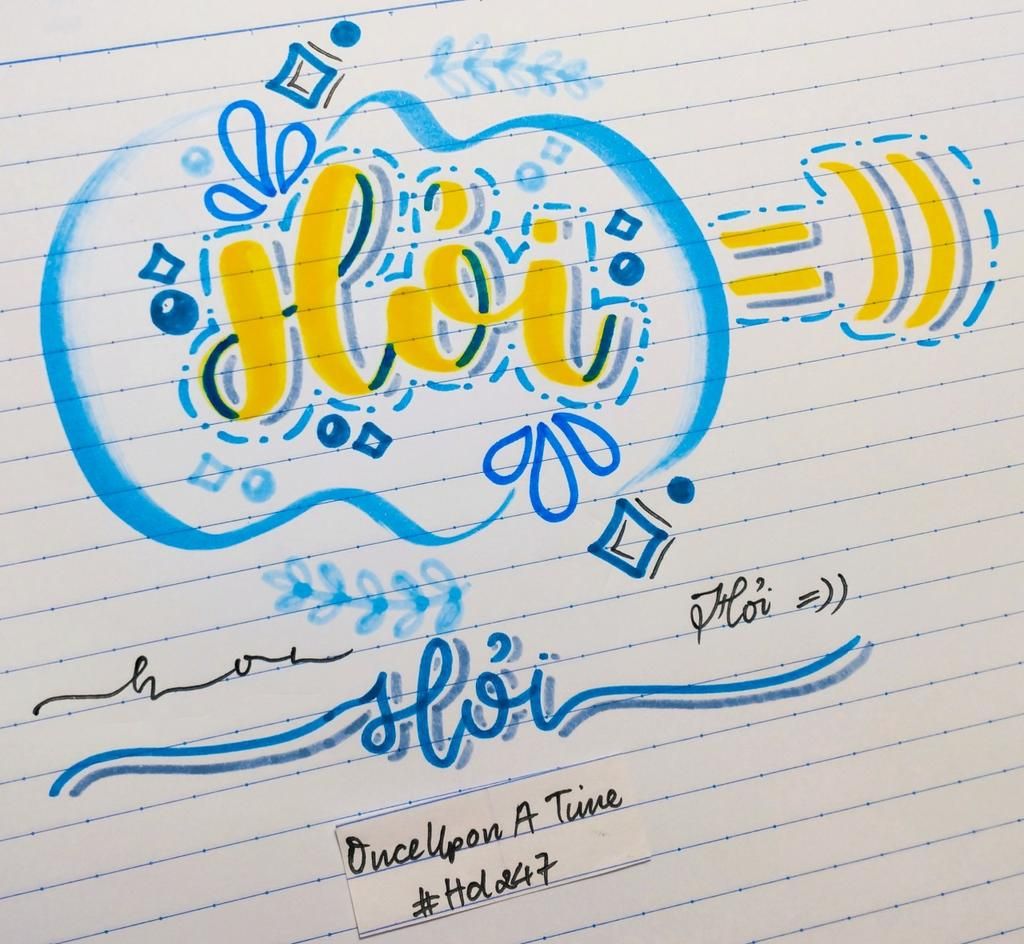 Hỏi =))
Hỏi =))
Hỏi
OnceUpon A Time
#Hd247